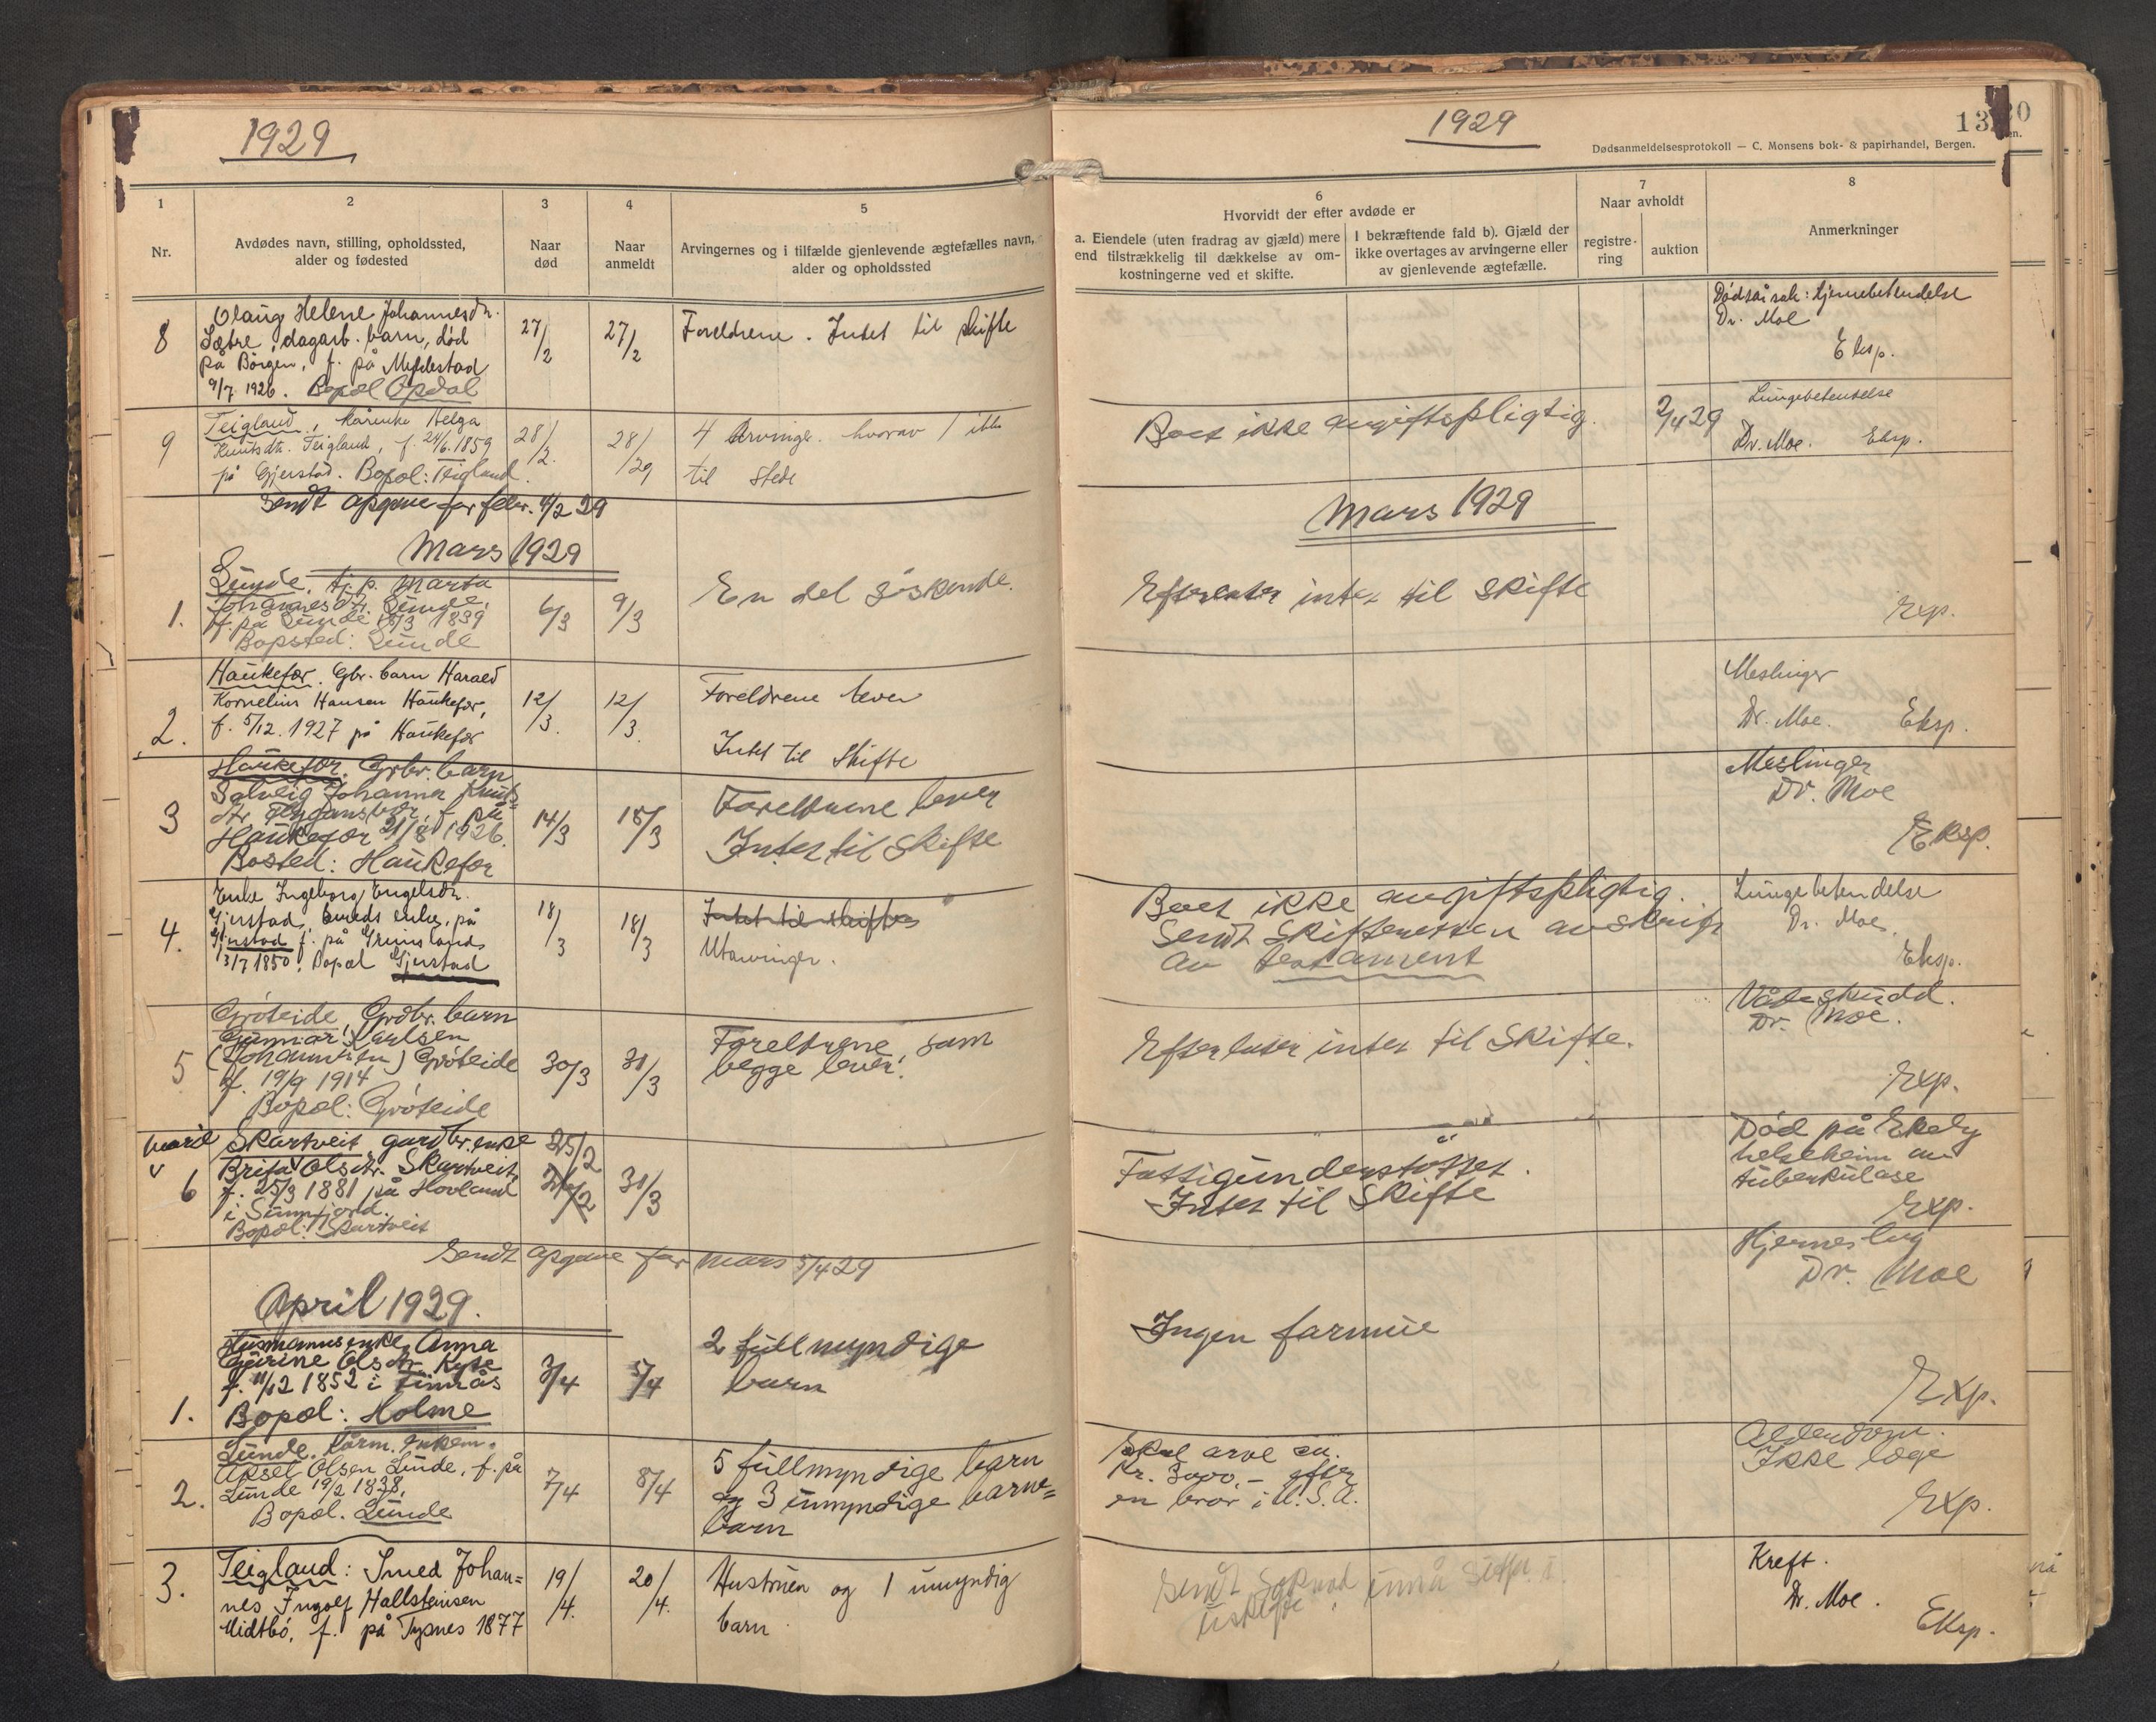 1929
1
2
3
4
5
Nr.
Avdødes navn, stilling, opholdssted,
alder og fødested
Naar
død
Naar
anmeldt
Arvingernes og i tilfælde gjenlevende ægtefælles navn,
alder og opholdssted
8
Olaug Helene Johannesdr.
Sætre, dagarb. barn, død
på Börgen, f. på
9/7 1926. Bopel Opdal
27/2
27/2
Foreldrene. Intet til skifte
9
Teigland, kårenke Helga
Knutsdtr. Teigland, f. 24/6 1859
på Gjerstad. Bopel: Teigland.
28/2.
28/29
4 Arvinger. hvorav 1 ikke
til stede
Sendt opgave for febr. 29
Mars 1929
1.
Lunde, tj.p. Marta
Johannesdt. Lunde,
f. på Lunde 1839
Bopsted: Lunde
6/3
9/3
En del söskende.
2.
Haukefær. Gbr. barn Harald
Kornelius Hansen Haukefær,
f. 5/12. 1927 på Haukefær
12/3.
12/3.
Foreldrene lever
Intet til Skifte
3
Haukefær. Grbr. barn
Solveig Johanna Knuts=
dtr. f. på
Haukefær 21/8 1926.
Bosted: Haukefær
14/3
15/3
Foreldrene lever
Intet til skifte
4.
Enke Ingeborg Engelsdtr.
Gjerstad, enke, på
Gjerstad f. på Grimsland
13/7 1850. Bopel Gjerstad
18/3
18/3
Intet til skifte
Utarvinger.
5
Gröteide, Grdbr. barn
Gunnar Karlsen
(Johannesen) Gröteide
f. 19/9 1914
Bopel: Gröteide
30/3
31/3
Foreldrene, som
begge lever.
6
Skartveit, gardbr. enke
Brita Olsdtr. Skartveit,
f. 25/3 1881 på Hovland
i Sunnfjord.
Bopel: Skartveit
25/2
31/3
Sendt opgave for mars 5/4 29
April 1929.
1.
Husmannsenke Anna
Gurine Olsdtr.
f. 11/12 1852 i
Bopel: Holme
3/4
5/4
2 fullmyndige
barn
2.
Lunde, kårm. enkem.
Aksel Olsen Lunde, f. på
Lunde 19/2 1838.
Bopel. Lunde
7/4
8/4
5 fullmyndige barn
og 3 umyndige barne=
barn
3.
Teigland: Smed Johan=
nes Ingolf Hallsteinsen
Midtbö, f. på Tysnes 1877
19/4.
20/4.
Hustruen og 1 umyndig
barn.
1929
13
Dødsanmeldelsesprotokoll — C. Monsens bok- & papirhandel, Bergen.
6
7
8
Hvorvidt der efter avdøde er
Naar avholdt
a. Eiendele (uten fradrag av gjæld) mere
end tilstrækkelig til dækkelse av om-
kostningerne ved et skifte.
I bekræftende fald b). Gjæld der
ikke overtages av arvingerne eller
av gjenlevende ægtefælle.
registre-
ring
auktion
Anmerkninger
Dödsårsak: hjernebetendelse
Dr. Moe
Eksp.
Boet ikke avgiftspligtig.
2/4 29
Lungebetendelse
Dr. Moe. Eksp.
Mars 1929
Efterlater intet til skifte
Exp.
Meslinger
Dr. Moe. Eksp.
Meslinger
Dr. Moe
Eksp.
Boet ikke avgiftspligtig.
Sendt Skifteretten avskrift
av testament
Lungebetendelse
Dr. Moe.
Eksp.
Efterlater intet til Skifte.
Vådeskudd.
Dr. Moe.
Exp.
Fattigunderstöttet.
Intet til Skifte
Död på Ekely
helseheim av
tuberkulose
Exp.
Ingen formue
Hjerneslag
Dr. Moe
Exp.
Skal arve ca.
Kr. 3000.- efter
en bror i U.S.A.
Alderdom.
Ikke læge
Exp.
Sendt
uskifte
Kreft.
Dr. Moe.
Eksp.